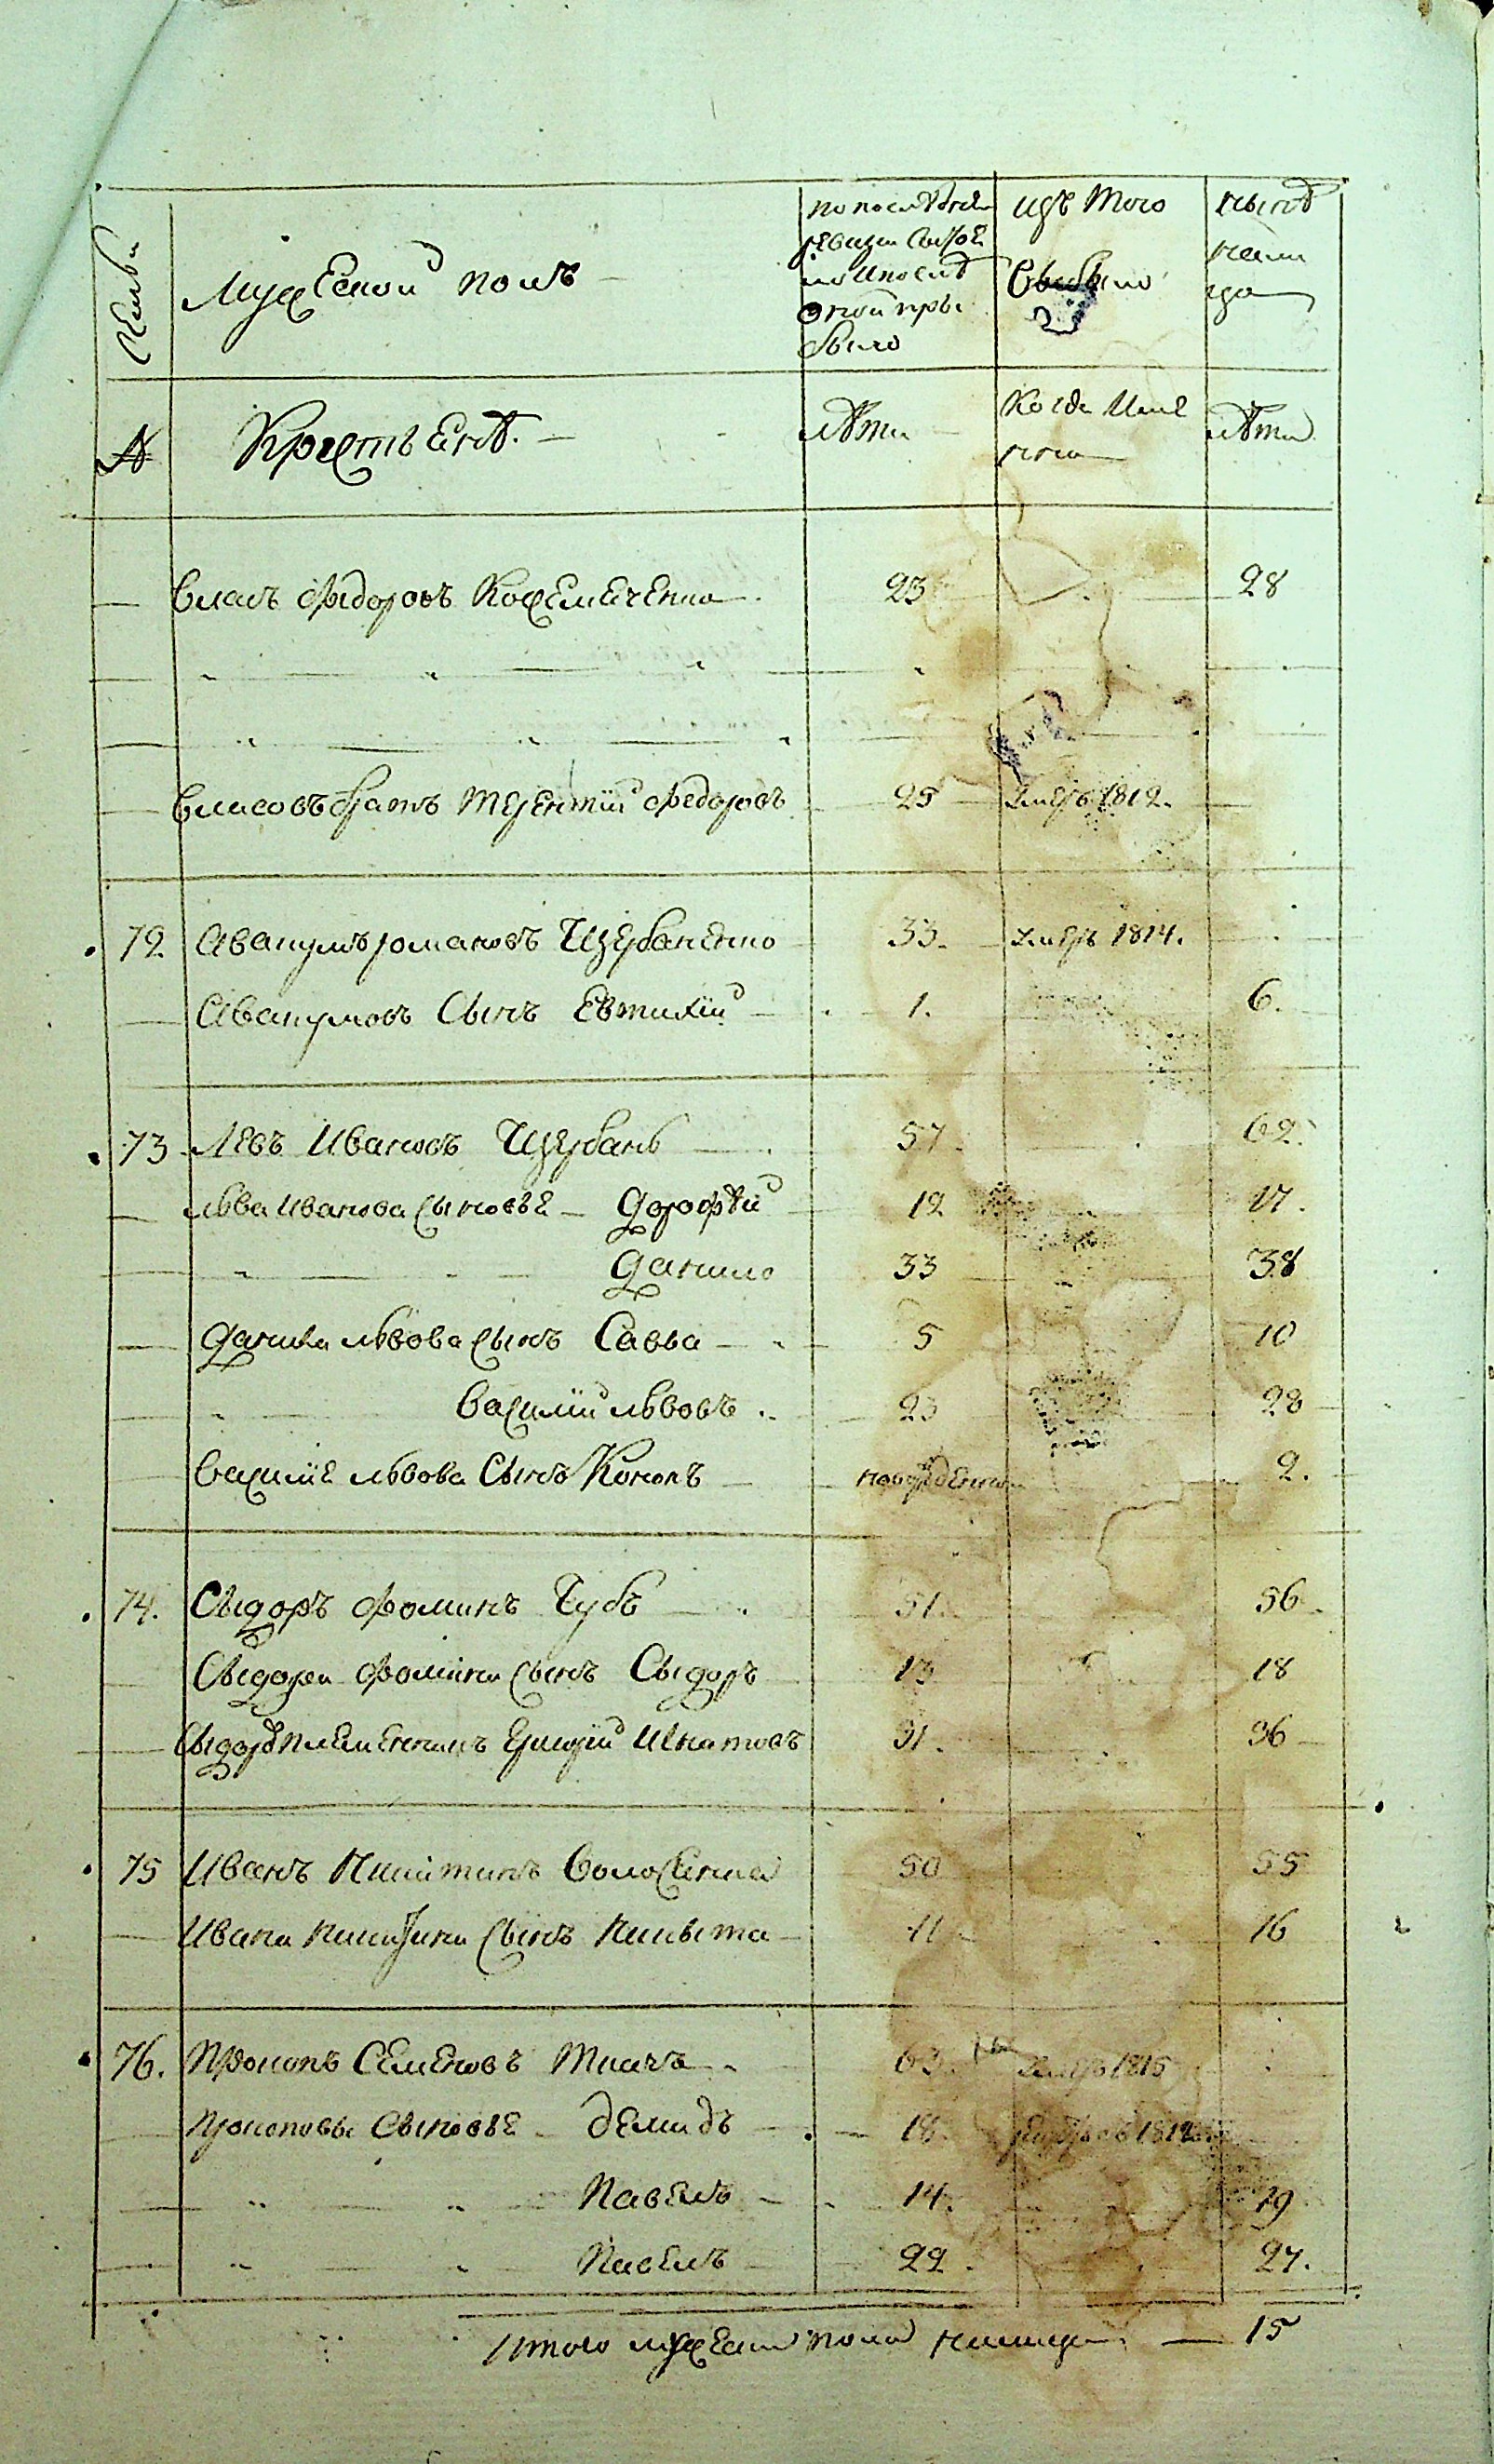 Семьи
Мужескои полъ
по последней
ревизіи состоя
ло и после
оной при
было
изъ того
выбыло
ныне
нали
цо
№
Крестьяне.
лѣта
Когда имен
но
лѣта
Власъ Федоровъ Кожемяченко 23 28
Власовъ братъ Терентій Федоровъ 25 умеръ 1812.
72 Авакумъ романовъ Щербаненко 33. умеръ 1814.
Авакумовъ Сынъ Евтихій 1. 6.
73 Левъ Ивановъ Щербань 57. 62.
Льва Иванова Сыновье Дорофѣй 12 17.
Данило 33 38
Данила Львова Сынъ Савва 5 10
Василій Львовъ 23 28
Василіе Львова Сынъ Кононъ новорожденной 2.
74. Сыдоръ Фоминъ Чубъ 51. 56.
Сыдора Фомина Сынъ Сыдоръ 13 18
Сыдора племенникъ Игнатовъ 31. 36
75 Иванъ Никитинъ 50 55
Ивана Никитина Сынъ Никыта 11 16
76. Прокопъ Семеновъ Ткачъ 63. умеръ 1815
Прокоповы Сыновье Демидъ 18. 1812
Павелъ 14. 19
Павелъ 22. 27.
Итого мужеска пола налицо 15